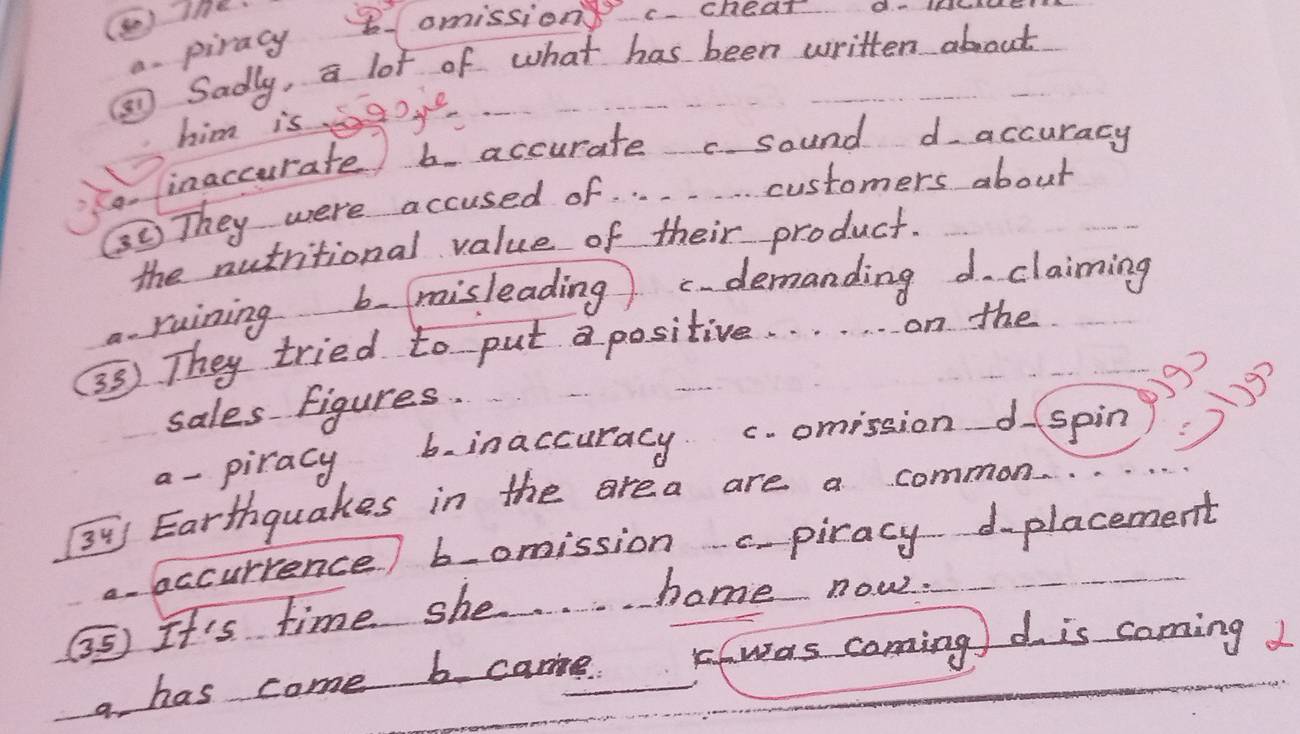 a- piracy b- omission c- cheat
(31) Sadly, a lot of what has been written about
him is ..........
a- inaccurate b- accurate c- sound d- accuracy
(32) They were accused of ........ customers about
the nutritional value of their product.
a- ruining b- misleading c- demanding d- claiming
(33) They tried to put a positive ....... on the
sales figures.
a- piracy b- inaccuracy c- omission d- spin
(34) Earthquakes in the area are a common ......
a- occurrence b- omission c- piracy d- placement
(35) It's time she ...... home now.
a- has come b- came c- was coming d- is coming